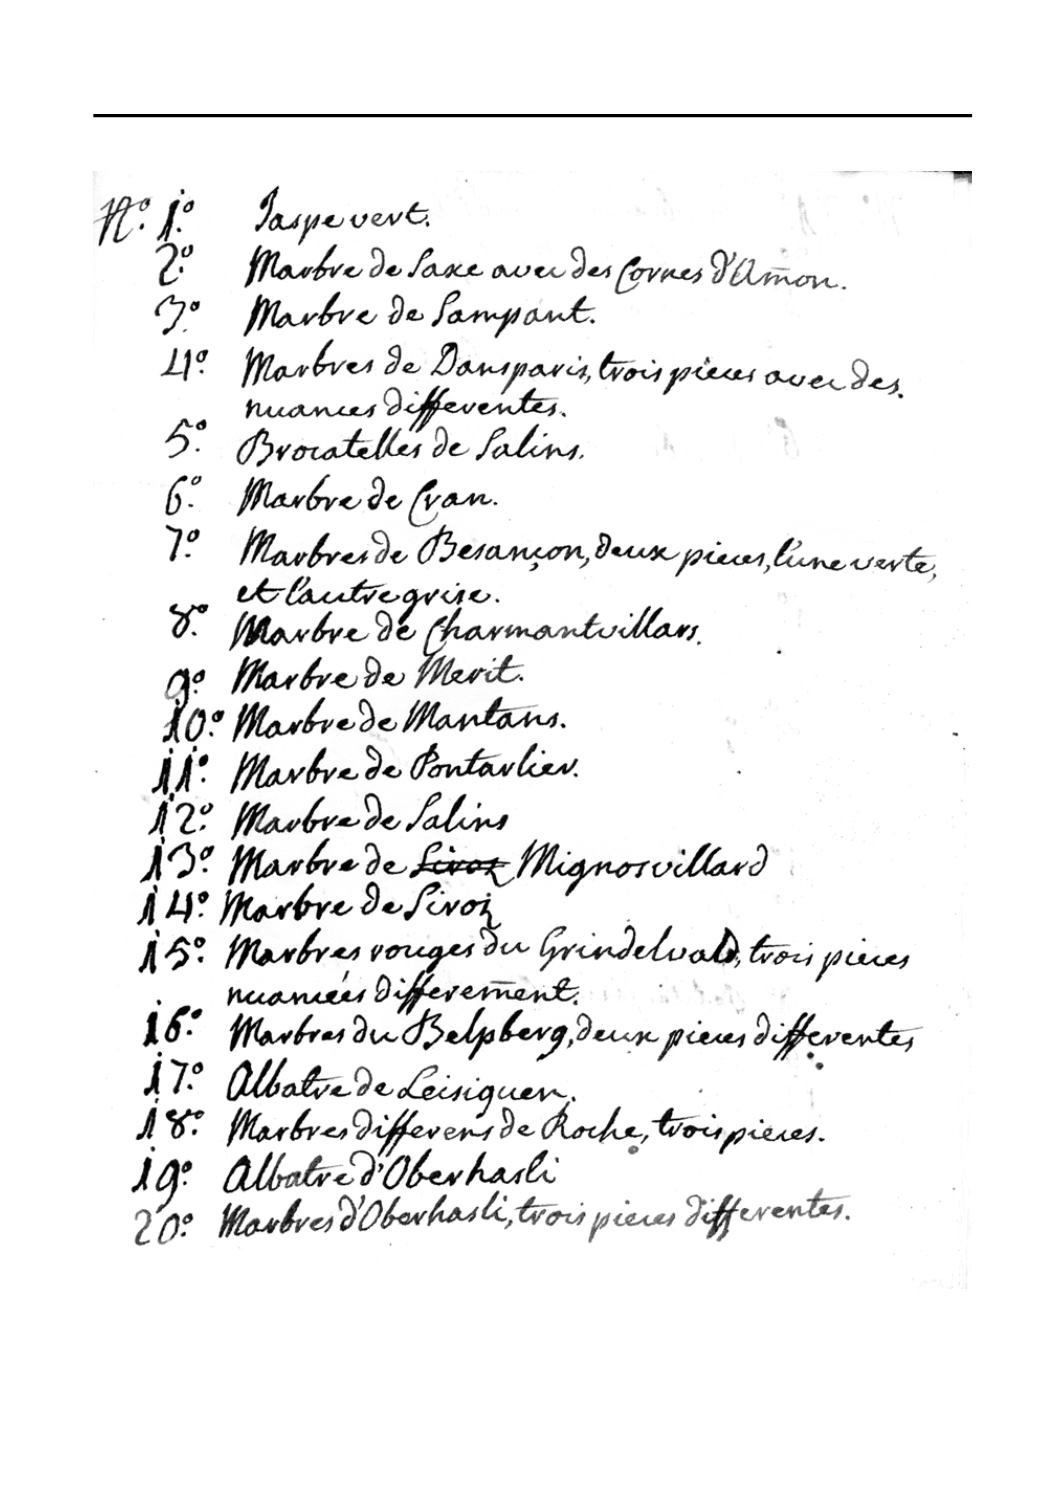 N.º 1.º Jaspe vert.
2.º Marbre de Saxe avec des Cornes d'Am̄on.
3.º Marbre de Sampant.
4.º Marbres de Dansparis, trois pieces avec des
nuances differentes.
5.º Brocatelles de Salins.
6.º Marbre de Cran.
7.º Marbres de Besançon, deux pieces, l'une verte,
et l'autre grise.
8.º Marbre de Charmantvillars.
9.º Marbre de Merit.
10.º Marbre de Mantans.
11.º Marbre de Pontarlier.
12.º Marbre de Salins
13.º Marbre de Siroz Mignosvillard
14.º Marbre de Siroz
15.º Marbres rouges du Grindelvald, trois pieces
nuancées differem̄ent.
16.º Marbres du Belpberg, deux pieces differentes
17.º Albatre de Leisiguen.
18.º Marbres differens de Roche, trois pieces.
19.º Albatre d'Oberhasli
20.º Marbres d'Oberhasli, trois pieces differentes.